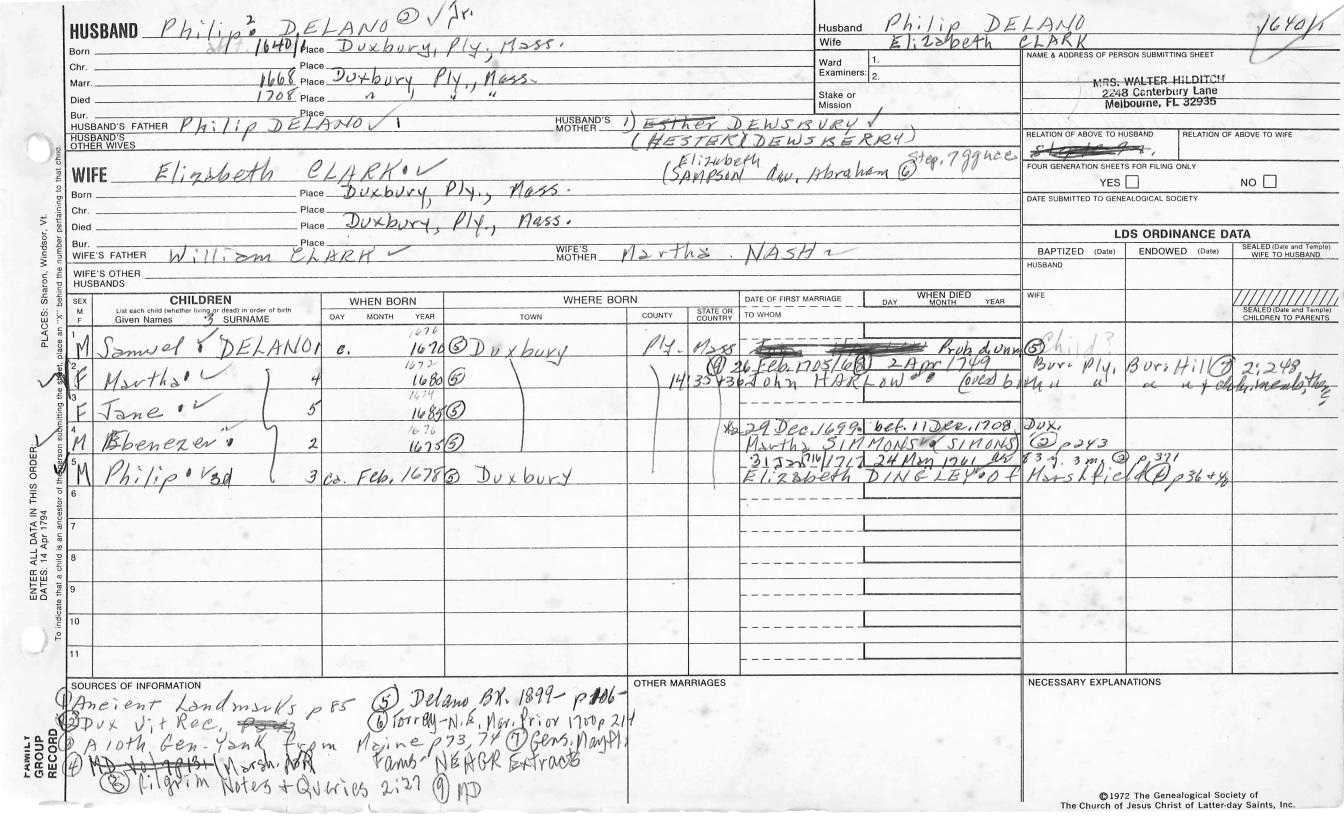 HUSBAND Philip² DELANO ② ✓ Jr.
Born 1640/1 Place Duxbury, Ply., Mass.
Chr. Place
Marr. 1668 Place Duxbury Ply., Mass.
Died 1708 Place " " "
Bur. Place
HUSBAND'S FATHER Philip DELANO ✓ 1
HUSBAND'S MOTHER 1) Esther DEWSBURY ✓
HUSBAND'S OTHER WIVES
(HESTER) DEWSBERRY)
Husband Philip DELANO
Wife Elizabeth CLARK
1640/1
Ward Examiners: 1.
2.
Stake or Mission
NAME & ADDRESS OF PERSON SUBMITTING SHEET
MRS. WALTER HILDITCH
2248 Canterbury Lane
Melbourne, FL 32935
RELATION OF ABOVE TO HUSBAND
RELATION OF ABOVE TO WIFE
FOUR GENERATION SHEETS FOR FILING ONLY
YES NO
DATE SUBMITTED TO GENEALOGICAL SOCIETY
WIFE Elizabeth CLARK ✓
Elizabeth Step. 7
(SAMPSON dau. Abraham ⑥
Born Place Duxbury, Ply., Mass.
Chr. Place
Died Place Duxbury, Ply., Mass.
Bur. Place
WIFE'S FATHER William CLARK ✓
WIFE'S MOTHER Martha NASH ✓
WIFE'S OTHER HUSBANDS
LDS ORDINANCE DATA
BAPTIZED (Date) ENDOWED (Date) SEALED (Date and Temple) WIFE TO HUSBAND
HUSBAND
WIFE
SEALED (Date and Temple) CHILDREN TO PARENTS
SEX M F
CHILDREN
List each child (whether living or dead) in order of birth
Given Names 3 SURNAME
WHEN BORN
DAY MONTH YEAR
WHERE BORN
TOWN COUNTY STATE OR COUNTRY
DATE OF FIRST MARRIAGE
TO WHOM
WHEN DIED
DAY MONTH YEAR
1 M Samuel ✓ DELANO 1 c. 1670 ⑤ Duxbury Ply. Mass Prob. d. unm ⑤ Child?
1672
2 F Martha ✓ 4 1680 ⑤ 26 Feb. 1705/6 2 Apr 1749 Bur. Ply. Bur. Hill ⑦ 2:248
John HARLOW
1674
3 F Jane ✓ 5 1685 ⑤
1676
4 M Ebenezer 2 1675 ⑤ 29 Dec. 1699 bef. 11 Dec. 1708 Dux.
Martha SIMMONS SIMONS ② p 243
5 M Philip ✓ 3d 3 ca. Feb. 1678 ⑤ Duxbury 31 Jan 1716/1717 24 May 1761 83 y. 3 m. ② p. 371
Elizabeth DINGLEY of Marshfield p 36 +
6
7
8
9
10
11
SOURCES OF INFORMATION
① Ancient Landmarks p 85
② Dux Vit Rec.
③ A 10th Gen. Yank from Maine p 73, 74
④ (Marsh. VR
⑤ Delano BK. 1899- p 106-
⑥ Torrey-N.E. Mar. Prior 1700 p 214
⑦ Gens. Mayfl. Fams- NEAGR Extracts
⑧ Pilgrim Notes + Queries 2:27 ⑨ MD
OTHER MARRIAGES
NECESSARY EXPLANATIONS
©1972 The Genealogical Society of
The Church of Jesus Christ of Latter-day Saints, Inc.
FAMILY GROUP RECORD
ENTER ALL DATA IN THIS ORDER:
DATES: 14 Apr 1794
PLACES: Sharon, Windsor, Vt.
To indicate that a child is an ancestor of the person submitting the sheet, place an "X" behind the number pertaining to that child.